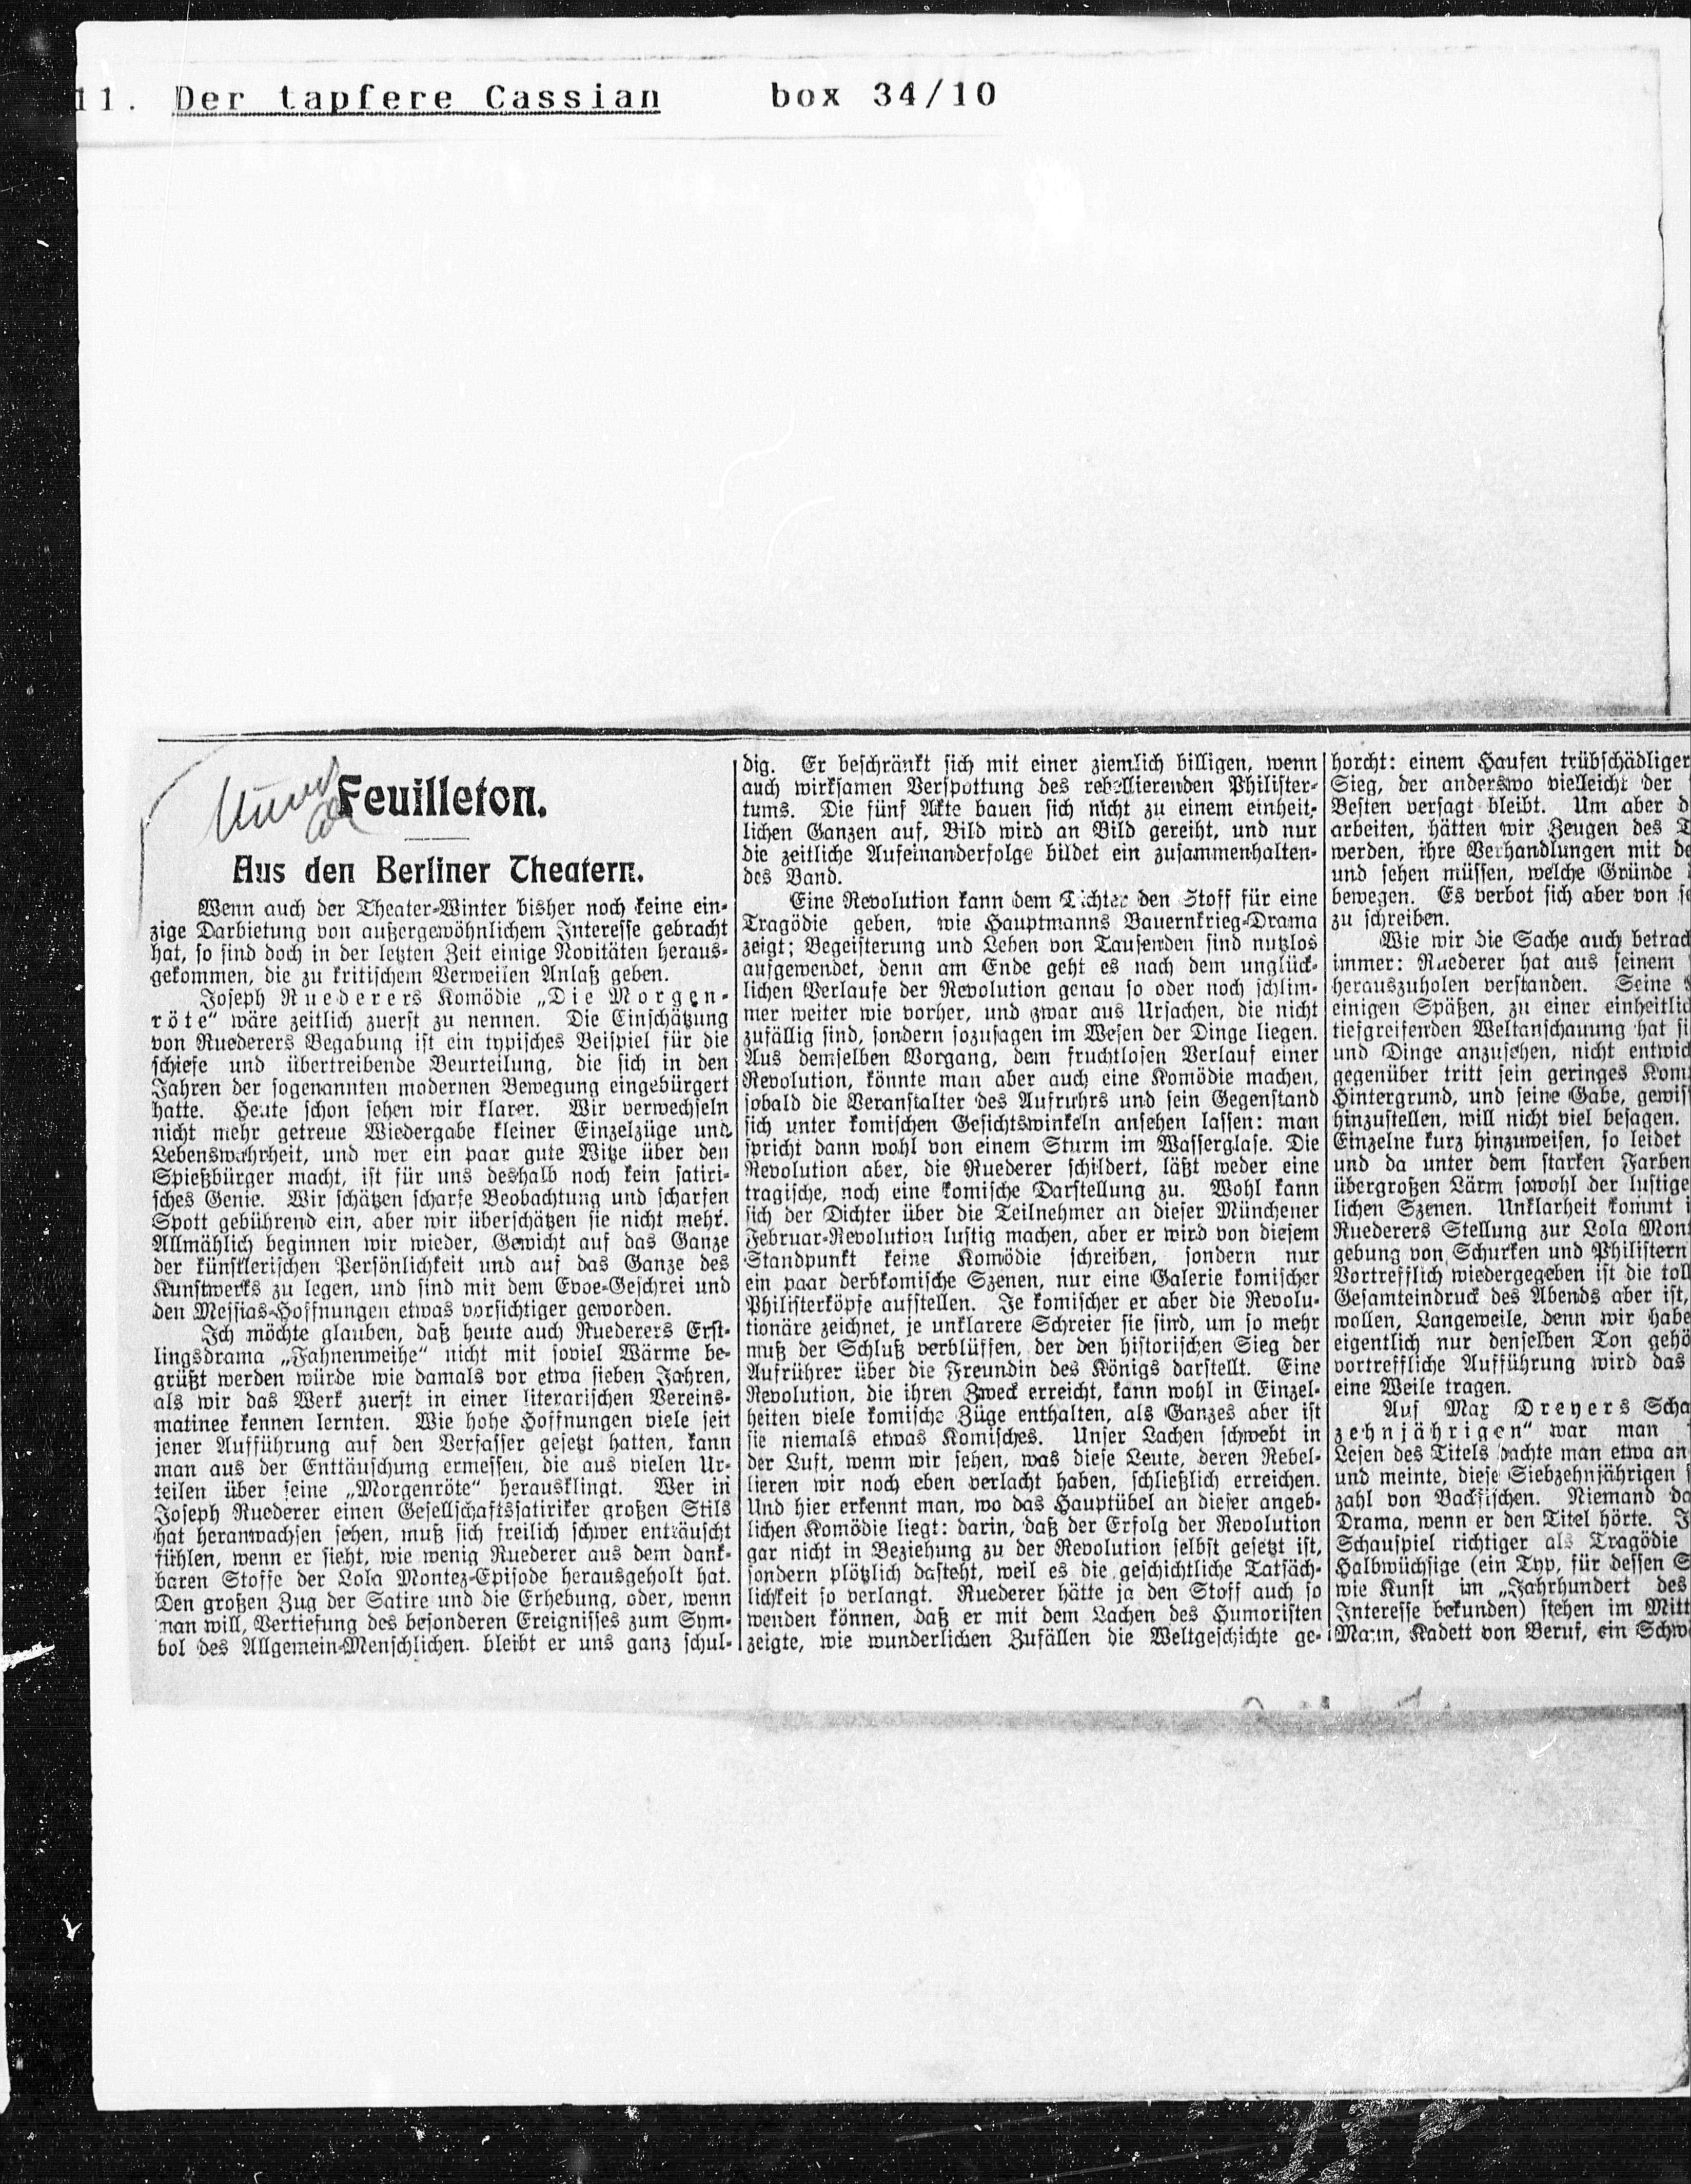 11. Der tapfere Cassian box 34/10
Feuilleton.
Aus den Berliner Theatern.
Wenn auch der Theater-Winter bisher noch keine ein-
zige Darbietung von außergewöhnlichem Interesse gebracht
hat, so sind doch in der letzten Zeit einige Novitäten heraus-
gekommen, die zu kritischem Verweilen Anlaß geben.
Joseph Ruederers Komödie „Die Morgen-
röte“ wäre zeitlich zuerst zu nennen. Die Einschätzung
von Ruederers Begabung ist ein typisches Beispiel für die
schiefe und übertreibende Beurteilung, die sich in den
Jahren der sogenannten modernen Bewegung eingebürgert
hatte. Heute schon sehen wir klarer. Wir verwechseln
nicht mehr getreue Wiedergabe kleiner Einzelzüge und
Lebenswahrheit, und wer ein paar gute Witze über den
Spießbürger macht, ist für uns deshalb noch kein satiri-
sches Genie. Wir schätzen scharfe Beobachtung und scharfen
Spott gebührend ein, aber wir überschätzen sie nicht mehr.
Allmählich beginnen wir wieder, Gewicht auf das Ganze
der künstlerischen Persönlichkeit und auf das Ganze des
Kunstwerks zu legen, und sind mit dem Evoe-Geschrei und
den Messias-Hoffnungen etwas vorsichtiger geworden.
Ich möchte glauben, daß heute auch Ruederers Erst-
lingsdrama „Fahnenweihe“ nicht mit soviel Wärme be-
grüßt werden würde wie damals vor etwa sieben Jahren,
als wir das Werk zuerst in einer literarischen Vereins-
matinee kennen lernten. Wie hohe Hoffnungen viele seit
jener Aufführung auf den Verfasser gesetzt hatten, kann
man aus der Enttäuschung ermessen, die aus vielen Ur-
teilen über seine „Morgenröte“ herausklingt. Wer in
Joseph Ruederer einen Gesellschaftssatiriker großen Stils
hat heranwachsen sehen, muß sich freilich schwer enttäuscht
fühlen, wenn er sieht, wie wenig Ruederer aus dem dank-
baren Stoffe der Lola Montez-Episode herausgeholt hat.
Den großen Zug der Satire und die Erhebung, oder, wenn
man will, Vertiefung des besonderen Ereignisses zum Sym-
bol des Allgemein-Menschlichen. bleibt er uns ganz schul-
dig. Er beschränkt sich mit einer ziemlich billigen, wenn
auch wirksamen Verspottung des rebellierenden Philister-
tums. Die fünf Akte bauen sich nicht zu einem einheit-
lichen Ganzen auf, Bild wird an Bild gereiht, und nur
die zeitliche Aufeinanderfolge bildet ein zusammenhalten-
des Band.
Eine Revolution kann dem Dichter den Stoff für eine
Tragödie geben, wie Hauptmanns Bauernkrieg-Drama
zeigt; Begeisterung und Leben von Tausenden sind nutzlos
aufgewendet, denn am Ende geht es nach dem unglück-
lichen Verlaufe der Revolution genau so oder noch schlim-
mer weiter wie vorher, und zwar aus Ursachen, die nicht
zufällig sind, sondern sozusagen im Wesen der Dinge liegen.
Aus demselben Vorgang, dem fruchtlosen Verlauf einer
Revolution, könnte man aber auch eine Komödie machen,
sobald die Veranstalter des Aufruhrs und sein Gegenstand
sich unter komischen Gesichtswinkeln ansehen lassen: man
spricht dann wohl von einem Sturm im Wasserglase. Die
Revolution aber, die Ruederer schildert, läßt weder eine
tragische, noch eine komische Darstellung zu. Wohl kann
sich der Dichter über die Teilnehmer an dieser Münchener
Februar-Revolution lustig machen, aber er wird von diesem
Standpunkt keine Komödie schreiben, sondern nur
ein paar derbkomische Szenen, nur eine Galerie komischer
Philisterköpfe aufstellen. Je komischer er aber die Revolu-
tionäre zeichnet, je unklarere Schreier sie sind, um so mehr
muß der Schluß verblüffen, der den historischen Sieg der
Aufrührer über die Freundin des Königs darstellt. Eine
Revolution, die ihren Zweck erreicht, kann wohl in Einzel-
heiten viele komische Züge enthalten, als Ganzes aber ist
sie niemals etwas Komisches. Unser Lachen schwebt in
der Luft, wenn wir sehen, was diese Leute, deren Rebel-
lieren wir noch eben verlacht haben, schließlich erreichen.
Und hier erkennt man, wo das Hauptübel an dieser angeb-
lichen Komödie liegt: darin, daß der Erfolg der Revolution
gar nicht in Beziehung zu der Revolution selbst gesetzt ist,
sondern plötzlich dasteht, weil es die geschichtliche Tatsäch-
lichkeit so verlangt. Ruederer hätte ja den Stoff auch so
wenden können, daß er mit dem Lachen des Humoristen
zeigte, wie wunderlichen Zufällen die Weltgeschichte ge-
horcht: einem Haufen trübschädliger
Sieg, der anderswo vielleicht der
Besten versagt bleibt. Um aber d
arbeiten, hätten wir Zeugen des
werden, ihre Verhandlungen mit de
und sehen müssen, welche Gründe
bewegen. Es verbot sich aber von se
zu schreiben.
Wie wir die Sache auch betrach
immer: Ruederer hat aus seinem
herauszuholen verstanden. Seine
einigen Späßen, zu einer einheitlich
tiefgreifenden Weltanschauung hat si
und Dinge anzusehen, nicht entwick
gegenüber tritt sein geringes Kom
Hintergrund, und seine Gabe, gewiss
hinzustellen, will nicht viel besagen.
Einzelne kurz hinzuweisen, so leidet
und da unter dem starken Farben
übergroßen Lärm sowohl der lustige
lichen Szenen. Unklarheit kommt i
Ruederers Stellung zur Lola Mont
gebung von Schurken und Philistern
Vortrefflich wiedergegeben ist die toll
Gesamteindruck des Abends aber ist,
wollen, Langeweile, denn wir habe
eigentlich nur denselben Ton gehö
vortreffliche Aufführung wird das
eine Weile tragen.
Auf Max Dreyers Scha
zehnjährigen“ war man
Lesen des Titels dachte man etwa an
und meinte, diese Siebzehnjährigen
zahl von Backfischen. Niemand da
Drama, wenn er den Titel hörte. I
Schauspiel richtiger als Tragödie
Halbwüchsige (ein Typ, für dessen S
wie Kunst im „Jahrhundert des
Interesse bekunden) stehen im Mitt
Mann, Kadett von Beruf, ein Schw